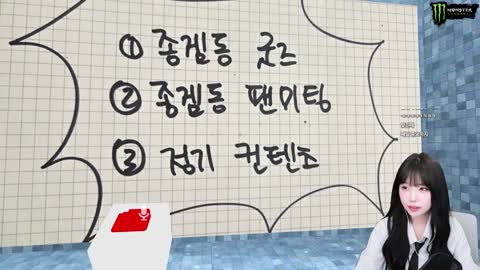 ① 종겜동 굿즈
② 종겜동 팬미팅
③ 정기 컨텐츠
MONSTER